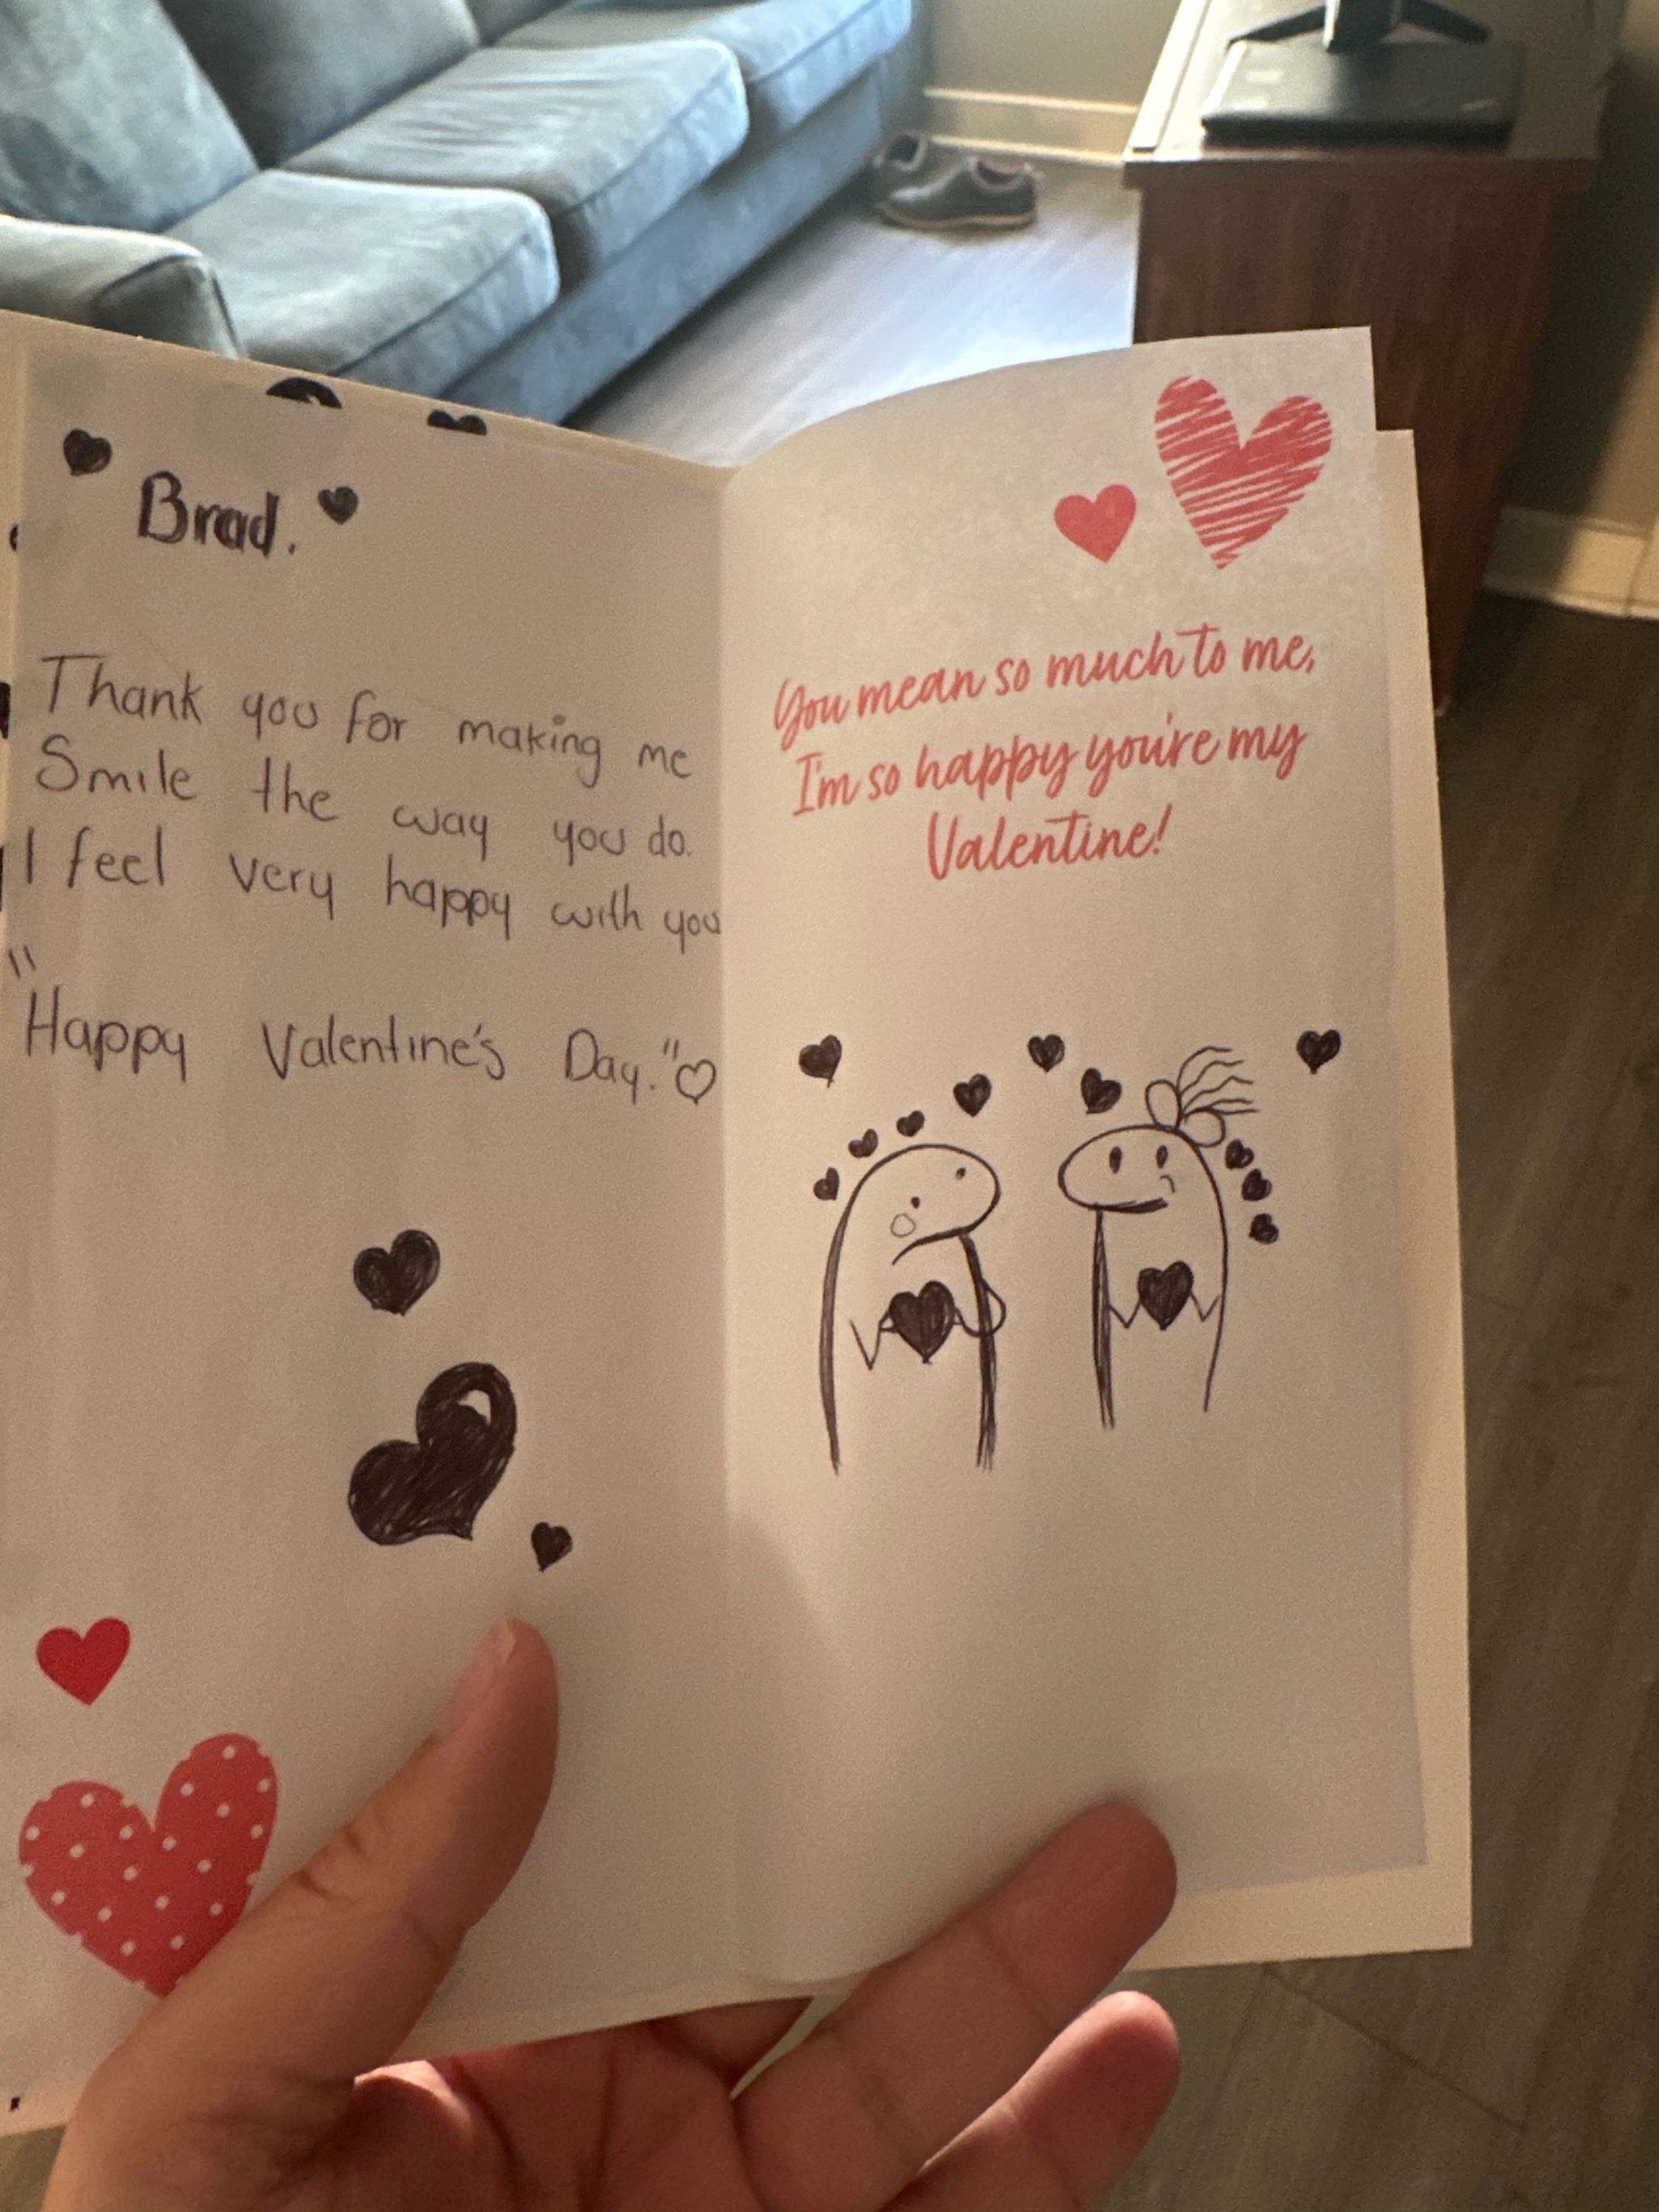 Brad.
Thank you for making me
Smile the way you do.
I feel very happy with you
"Happy Valentine's Day."
You mean so much to me,
I'm so happy you're my
Valentine!